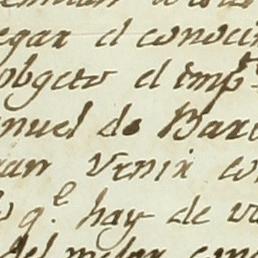 egar el conoci
obgeto el imp.to
nuel de Bar
ran venir co
q.e hay de v
del mejor